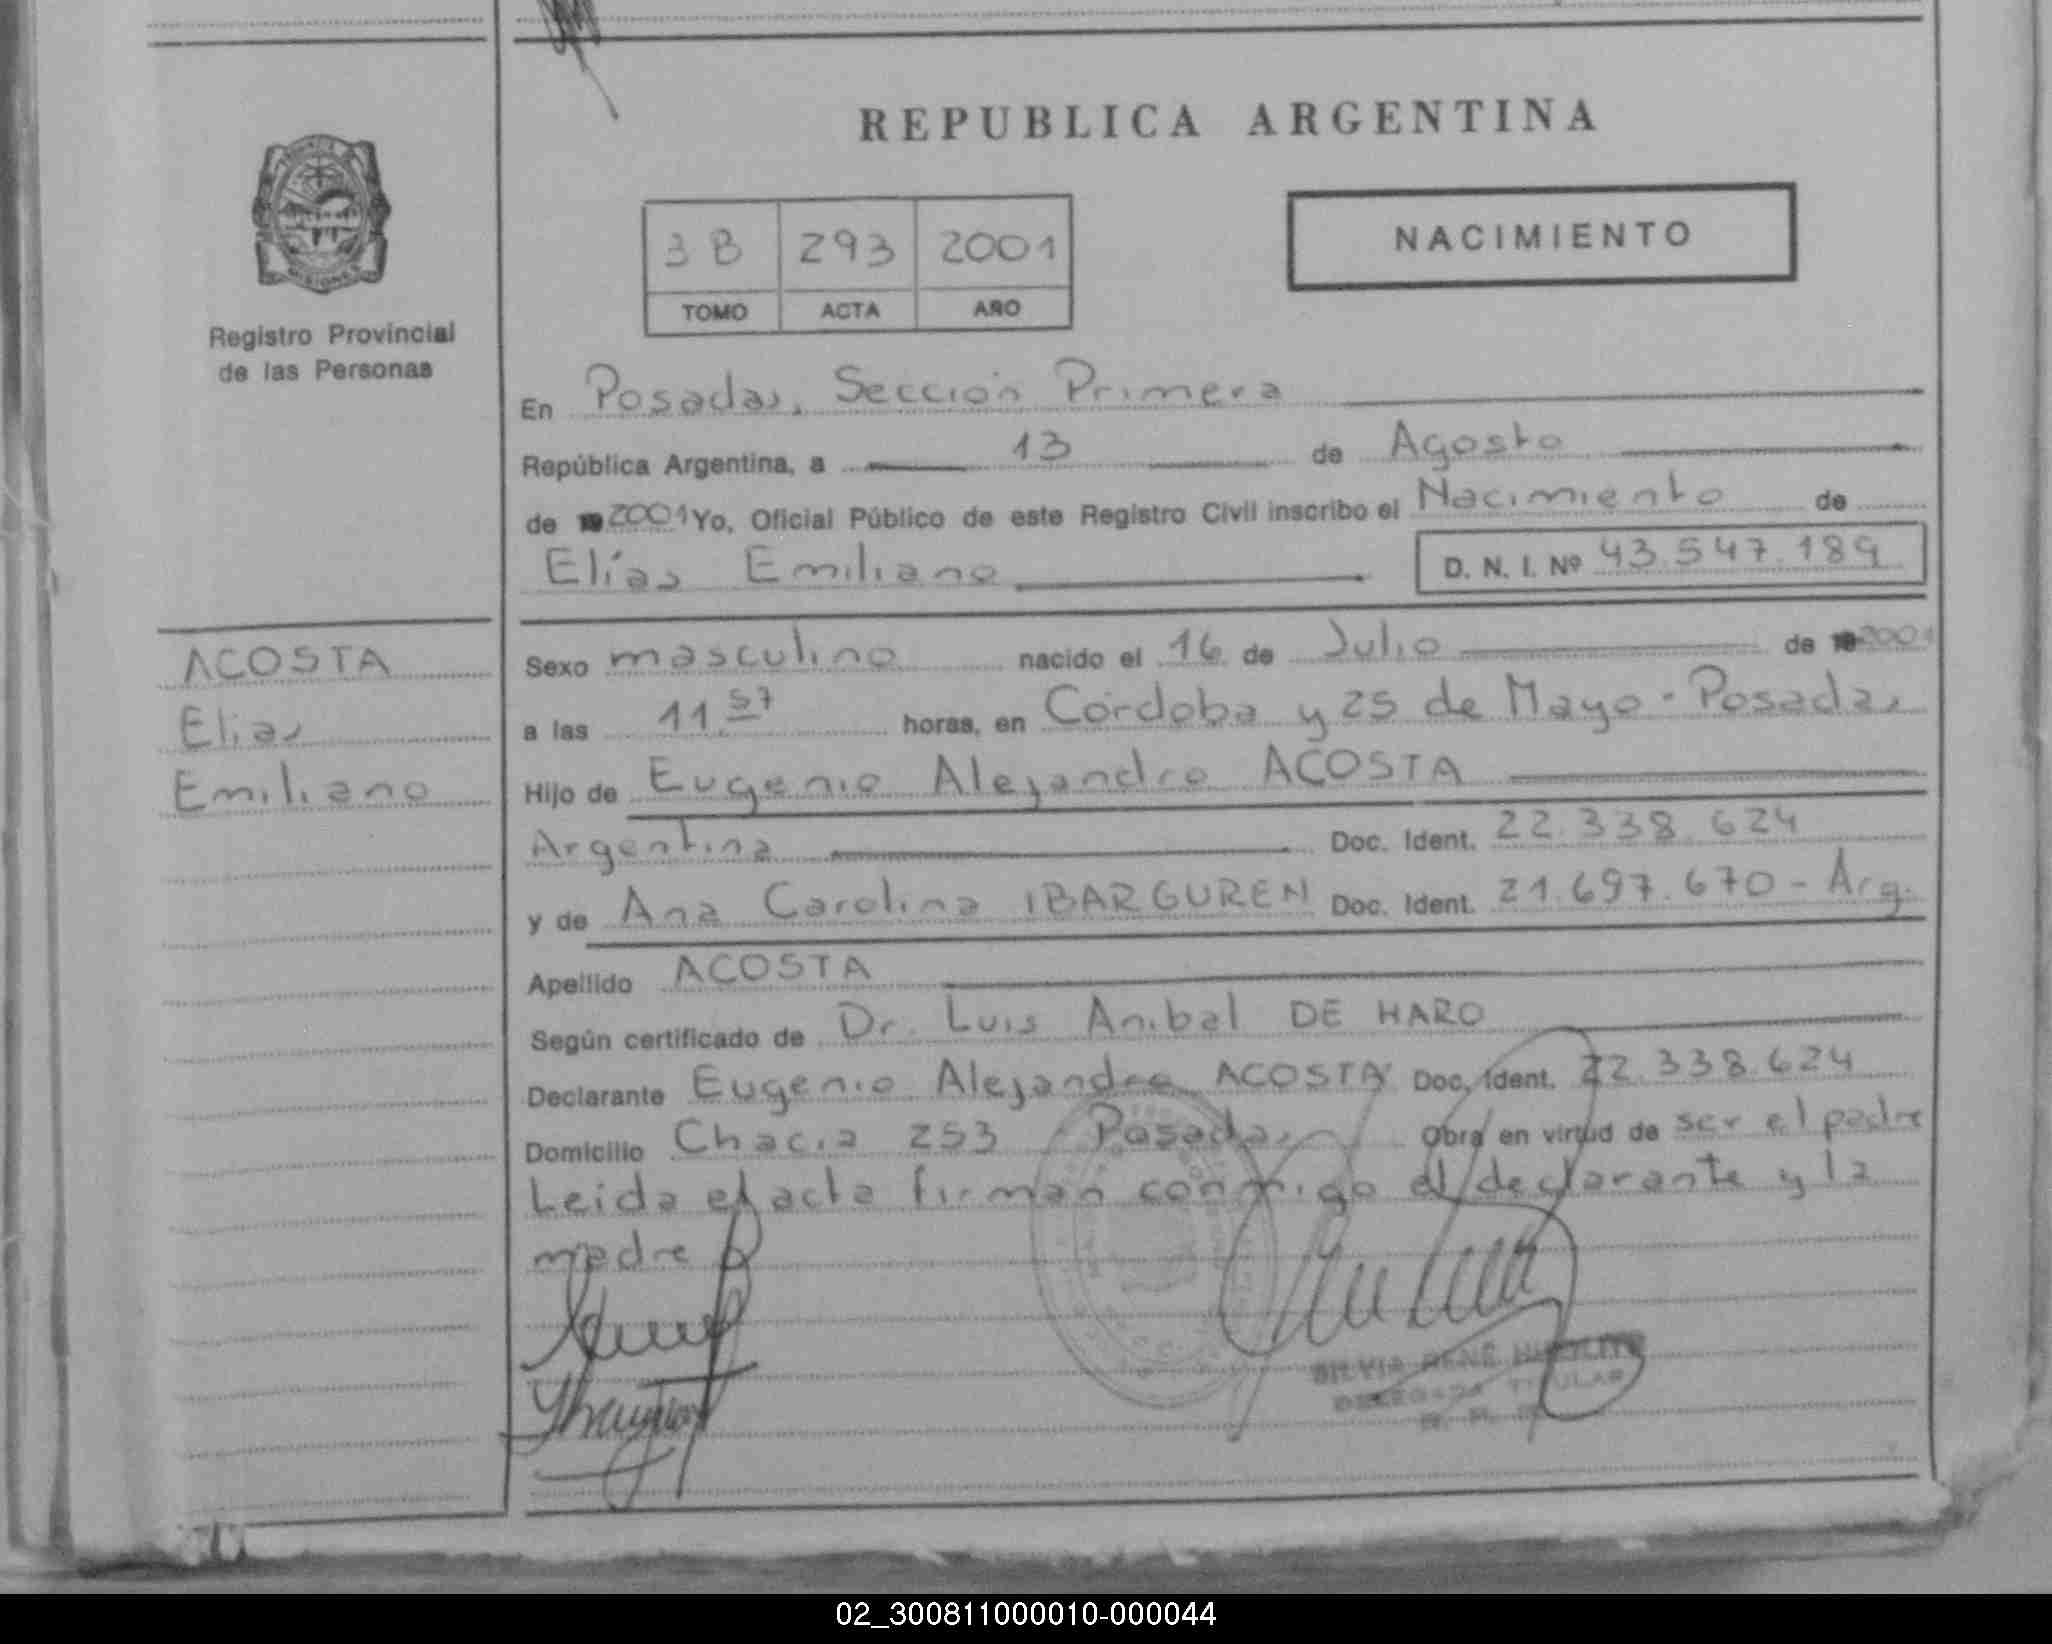 REPUBLICA ARGENTINA
MISIONES
Registro Provincial
de las Personas
3B 293 2001
TOMO ACTA AÑO
NACIMIENTO
En Posadas, Sección Primera
República Argentina, a 13 de Agosto
de 19 2001 Yo, Oficial Público de este Registro Civil inscribo el Nacimiento de
Elías Emiliano D. N. I. Nº 43.547.189
ACOSTA
Elias
Emiliano
Sexo masculino nacido el 16 de Julio de 19 2001
a las 11 57 horas, en Córdoba y 25 de Mayo - Posadas
Hijo de Eugenio Alejandro ACOSTA
Argentina Doc. Ident. 22.338.624
y de Ana Carolina IBARGUREN Doc. Ident. 21.697.670 - Arg.
Apellido ACOSTA
Según certificado de Dr. Luis Anibal DE HARO
Declarante Eugenio Alejandro ACOSTA Doc. Ident. 22.338.624
Domicilio Chacra 253 Posadas Obra en virtud de ser el padre
Leida el acta firman conmigo el declarante y la
madre
SILVIA RENÉ HIPOLITO
DELEGADA TITULAR
02_300811000010-000044